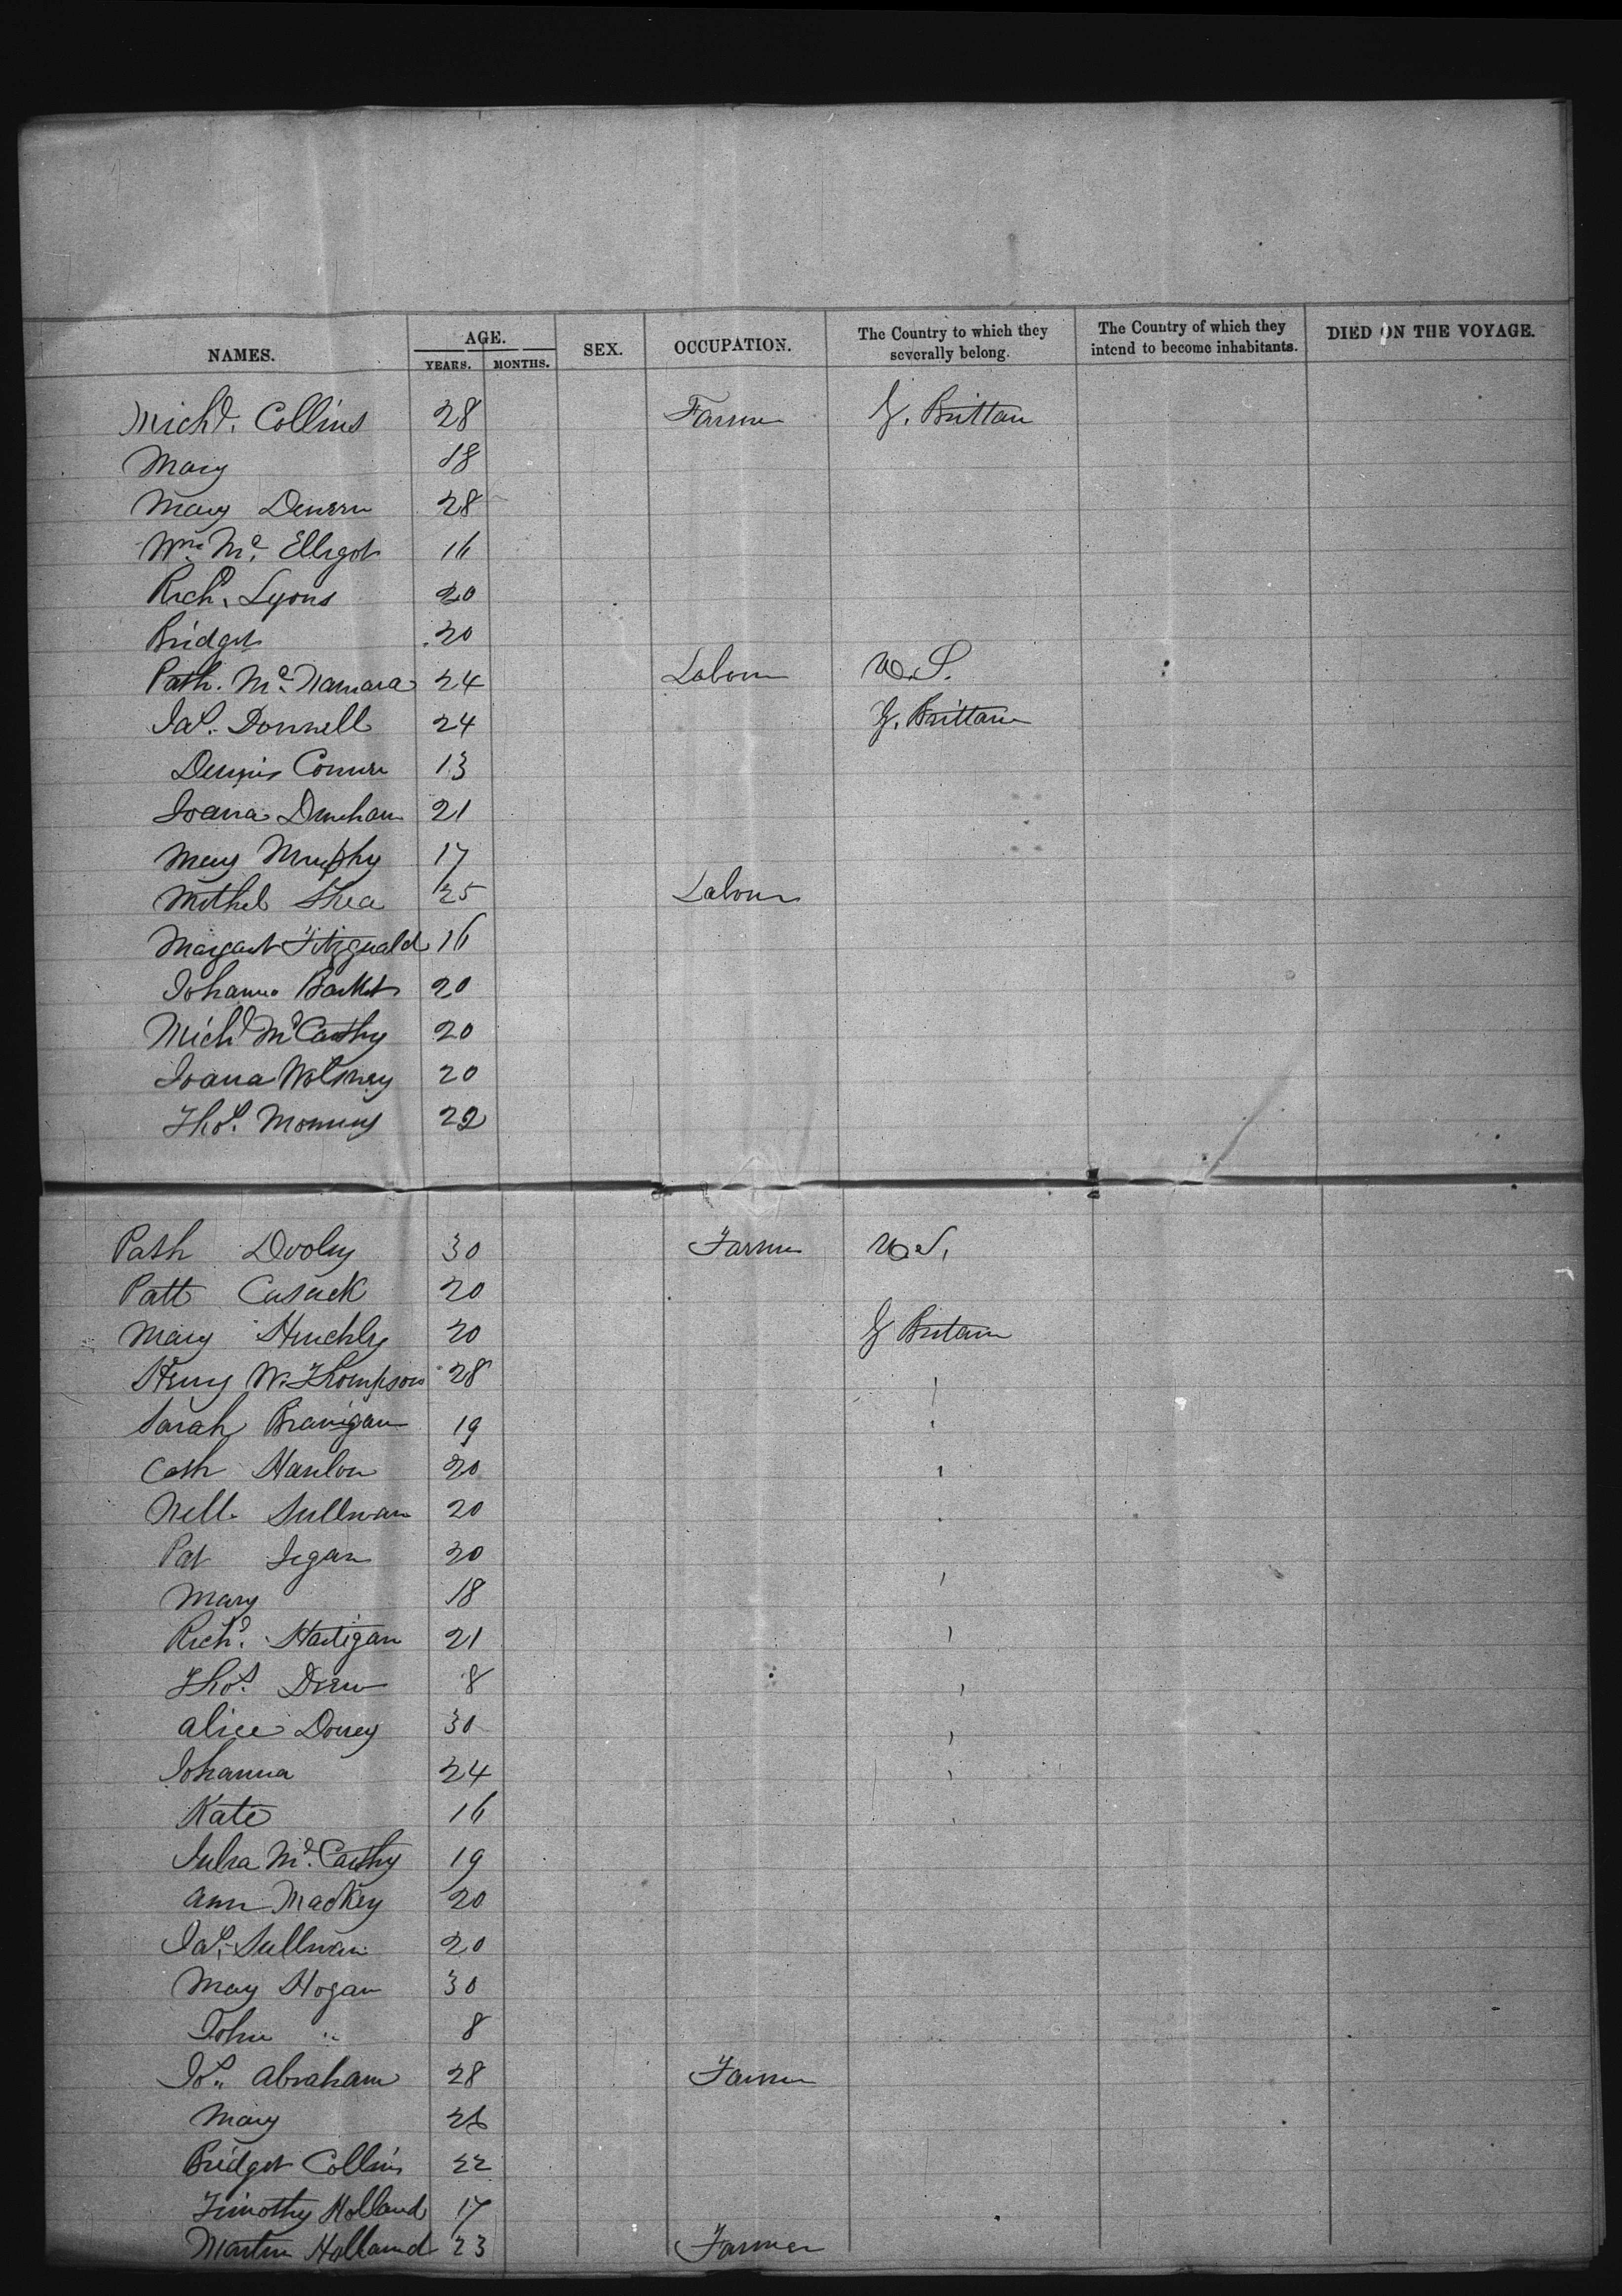 NAMES. AGE. YEARS. MONTHS. SEX. OCCUPATION. The Country to which they severally belong. The Country of which they intend to become inhabitants. DIED ON THE VOYAGE.
Michl. Collins 28 Farmer G. Brittan
Mary 18
Mary 28
Wm. Mc. Elligot 16
Richd. Lyons 20
Bridget 20
Patk. Mc. Namara 24 Labour U.S.
Jas. Donnell 24 G. Brittain
Dennis 13
Joana 21
Mary Murphy 17
Shea 25 Labour
Margaret Fitzgerald 16
Johanna 20
Michl McCarthy 20
Joana 20
Thos. 22
Patk Dooley 30 Farmer U.S.
Patt Cusack 20
Mary Hinchley 20 G Britain
Henry W. Thompson 28
Sarah Branigan 19
Cath Hanlon 20
Nell Sullivan 20
Pat 20
Mary 18
Richd. Hartigan 21
Thos. Drew 8
Alice 30
Johanna 24
Kate 16
Julia Mc. Carthy 19
Ann Mackey 20
Jas. Sullivan 20
Mary Hogan 30
John " 8
Abraham 28 Farmer
Mary
Bridget Collins 22
Timothy Holland 17
Martin Holland 23 Farmer